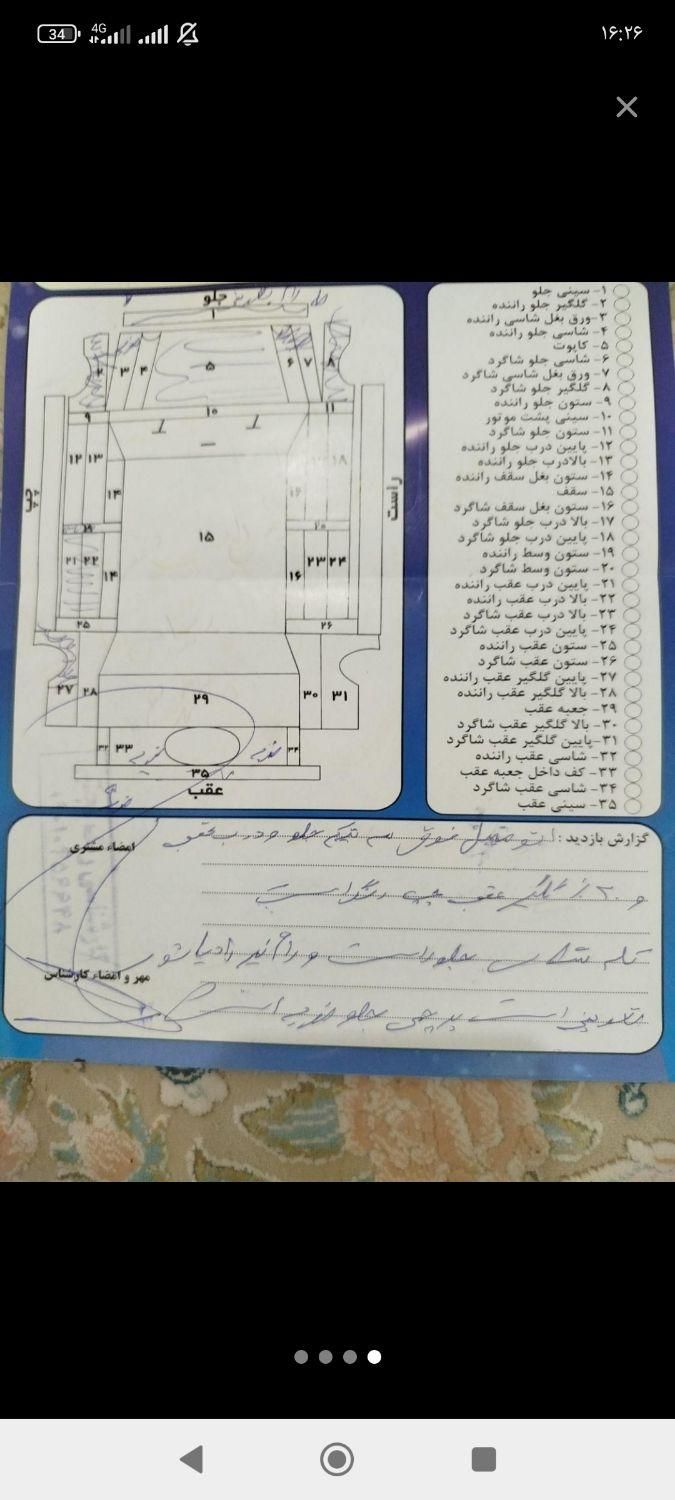 34
4G
۱۶:۲۶
جلو
۱
۲
۳
۴
۵
۶
۷
۸
۹
۱۰
۱۱
۱۲
۱۳
۱۴
۱۵
۱۶
۱۸
۱۹
۲۰
۲۱
۲۲
۱۴
۱۶
۲۳
۲۴
۲۵
۲۶
۲۷
۲۸
۲۹
۳۰
۳۱
۳۲
۳۳
۳۴
۳۵
عقب
چپ
راست
۱- سینی جلو
۲- گلگیر جلو راننده
۳-ورق بغل شاسی راننده
۴- شاسی جلو راننده
۵- کاپوت
۶- شاسی جلو شاگرد
۷- ورق بغل شاسی شاگرد
۸- گلگیر جلو شاگرد
۹- ستون جلو راننده
۱۰- سینی پشت موتور
۱۱- ستون جلو شاگرد
۱۲- پایین درب جلو راننده
۱۳- بالادرب جلو راننده
۱۴- ستون بغل سقف راننده
۱۵- سقف
۱۶- ستون بغل سقف شاگرد
۱۷- بالا درب جلو شاگرد
۱۸- پایین درب جلو شاگرد
۱۹- ستون وسط راننده
۲۰- ستون وسط شاگرد
۲۱- پایین درب عقب راننده
۲۲- بالا درب عقب راننده
۲۳- بالا درب عقب شاگرد
۲۴- پایین درب عقب شاگرد
۲۵- ستون عقب راننده
۲۶- ستون عقب شاگرد
۲۷- پایین گلگیر عقب راننده
۲۸- بالا گلگیر عقب راننده
۲۹- جعبه عقب
۳۰- بالا گلگیر عقب شاگرد
۳۱-پایین گلگیر عقب شاگرد
۳۲- شاسی عقب راننده
۳۳- کف داخل جعبه عقب
۳۴- شاسی عقب شاگرد
۳۵- سینی عقب
گزارش بازدید : اتومبیل فوق جلو و درب عقب
امضاء مشتری
و گلگیر عقب چپ رنگ است
جلو راست و رام زیر رادیاتور
مهر و امضاء کارشناس
تعویض است جلو است